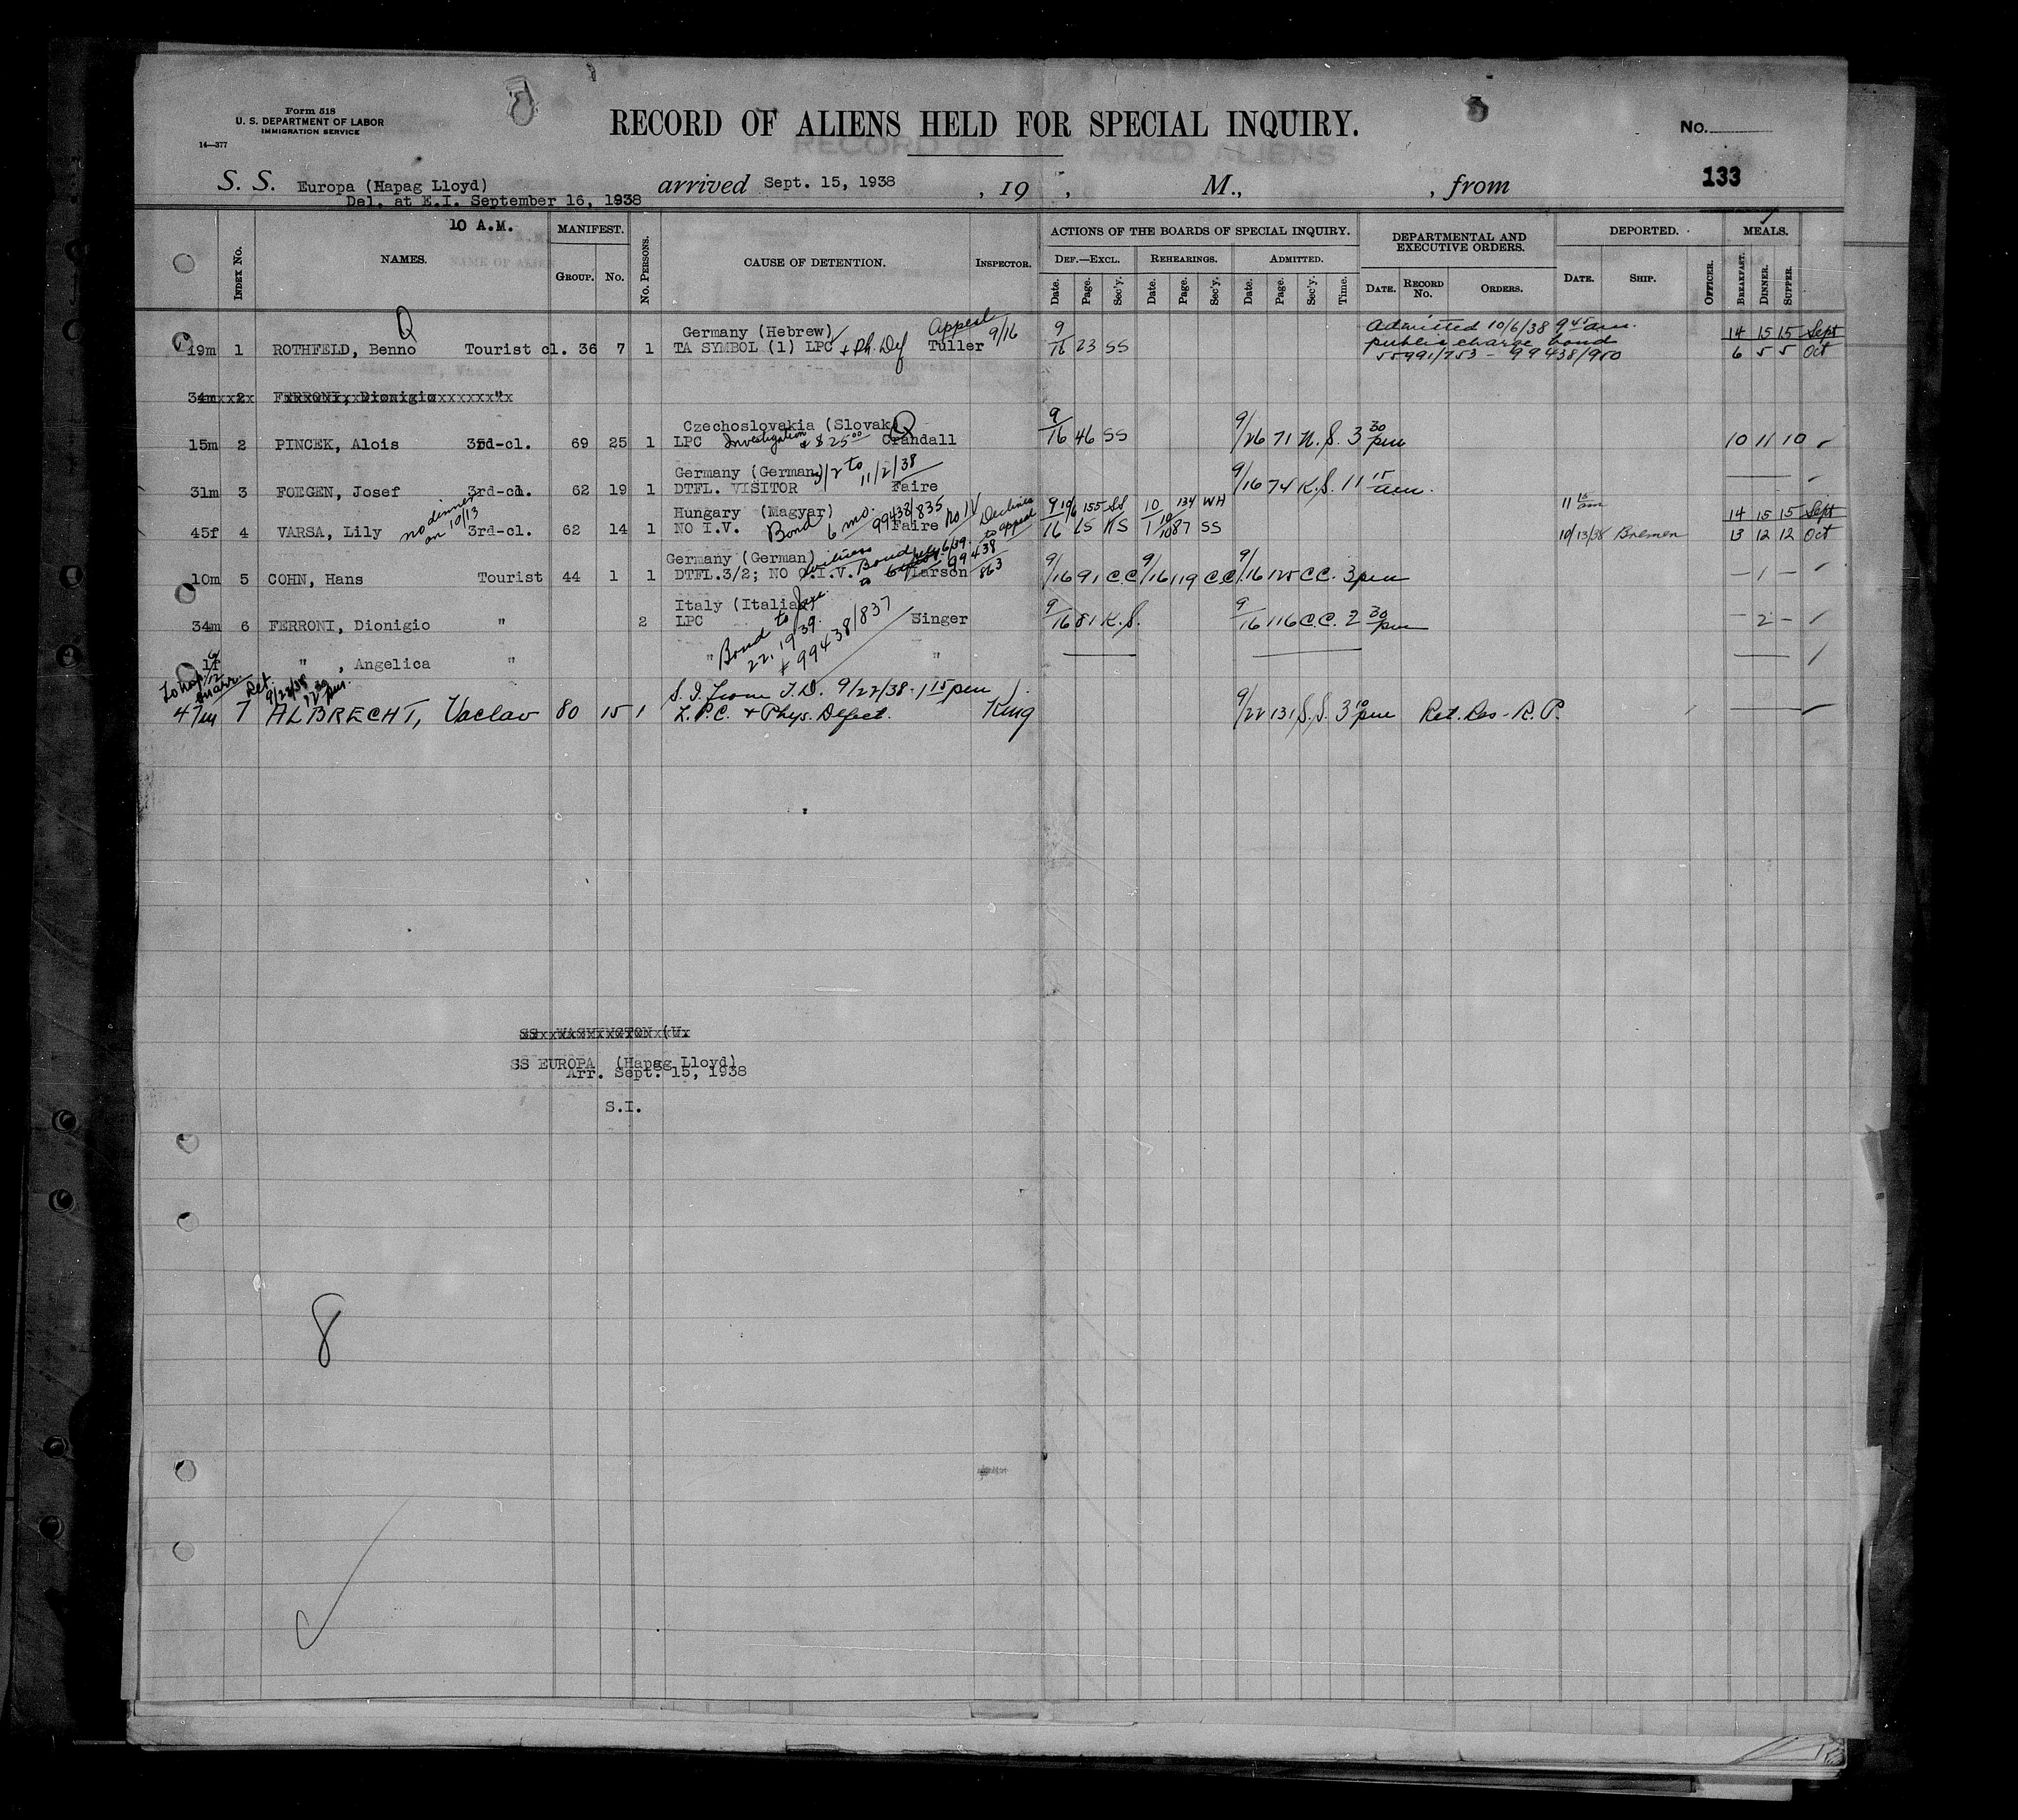 Form 518
U. S. DEPARTMENT OF LABOR
IMMIGRATION SERVICE
14—377
RECORD OF ALIENS HELD FOR SPECIAL INQUIRY.
No.
133
S. S. Europa (Hapag Lloyd) arrived Sept. 15, 1938 , 19 , M., , from
Del. at E.I. September 16, 1938
10 A.M.
Index No. NAMES. MANIFEST. Group. No. No. Persons. CAUSE OF DETENTION. Inspector.
ACTIONS OF THE BOARDS OF SPECIAL INQUIRY. Def.—Excl. Rehearings. Admitted.
Date. Page. Sec'y. Date. Page. Sec'y. Date. Page. Sec'y. Time.
DEPARTMENTAL AND EXECUTIVE ORDERS. Date. Record No. Orders.
DEPORTED. Date. Ship. Officer. MEALS. Breakfast. Dinner. Supper.
Q
Germany (Hebrew) Appeal 9/16 9 Admitted 10/6/38 9 45 am. 14 15 15 Sept
19m 1 ROTHFELD, Benno Tourist cl. 36 7 1 TA SYMBOL (1) LPC + Ph. Def Tuller 16 23 SS public charge bond 6 5 5 Oct
55991/753 - 99438/950
34m 2 FERRONI, Dionigio "
Czechoslovakia (Slovak) Q
15m 2 PINCEK, Alois 3rd-cl. 69 25 1 LPC Investigation & $25 00 Crandall 9/16 46 SS 9/26 71 N.S. 3 30 pm 10 11 10
Germany (German) 3/2 to 11/2/38
31m 3 FOEGEN, Josef 3rd-cl. 62 19 1 DTFL. VISITOR Faire 9/16 74 K.S. 11 15 am.
Hungary (Magyar) 6 mo. 99438/835 No IV Declines to appeal 9 10/6 155 SS 10 134 WH 11 15 am 14 15 15 Sept
45f 4 VARSA, Lily no dinner on 10/13 3rd-cl. 62 14 1 NO I.V. Bond Faire 16 10/10 87 SS 10/13/38 Bremen 13 12 12 Oct
Germany (German) witness Bond 99438/863
10m 5 COHN, Hans Tourist 44 1 1 DTFL.3/2; NO I.V. Larson 9/16 91 C.C. 9/16 119 C.C. 9/16 125 C.C. 3 pm — 1 —
Italy (Italian)
34m 6 FERRONI, Dionigio " 2 LPC Bond to Jan. 22, 1939. + 99438/837 Singer 9/16 81 K.S. 9/16 116 C.C. 2 30 pm — 2 —
1f " , Angelica " " "
To hosp. Ret. 9/22/38
S.I. from T.D. 9/22/38 - 1 15 pm
47m 7 ALBRECHT, Vaclav 80 15 1 L.P.C. + Phys. Defect. King 9/22 131 S.S. 3 10 pm Ret. Res - R.P.
SS WASHINGTON (U.
SS EUROPA (Hapag Lloyd)
Arr. Sept. 15, 1938
S.I.
8